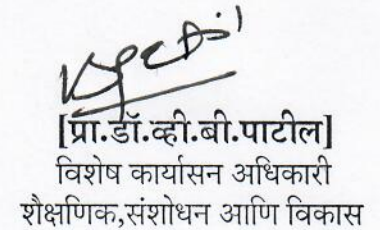 [प्रा.डॉ.व्ही.बी.पाटील]
विशेष कार्यासन अधिकारी
शैक्षणिक,संशोधन आणि विकास